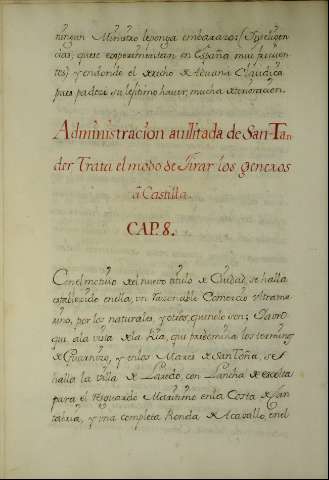 ningun Ministro leponga embarazos, è Inteligen
cias, quese experimentan en España mui frecuen
tes, y endonde el derecho de Aduana Claudica
pues padeze su lexitimo haver, mucha extenuacion.
Administracion auilitada de San-Tan
der Trata el modo de Tirar los generos
à Castilla.
CAP. 8.
Con el motivo del nuevo titulo de Ciudad, se halla
establecido en ella, un razonable Comercio ultrama
rino, por los naturales, y otros que
qui ala vista dela Ria, qui predomina los terminos
de y en los Mares de SanToña, se
halla la villa de Laredo, con Lancha de escolta
para el resguardo Maritimo en la Costa de San
tabria, y una completa Ronda de Acavallo, en el